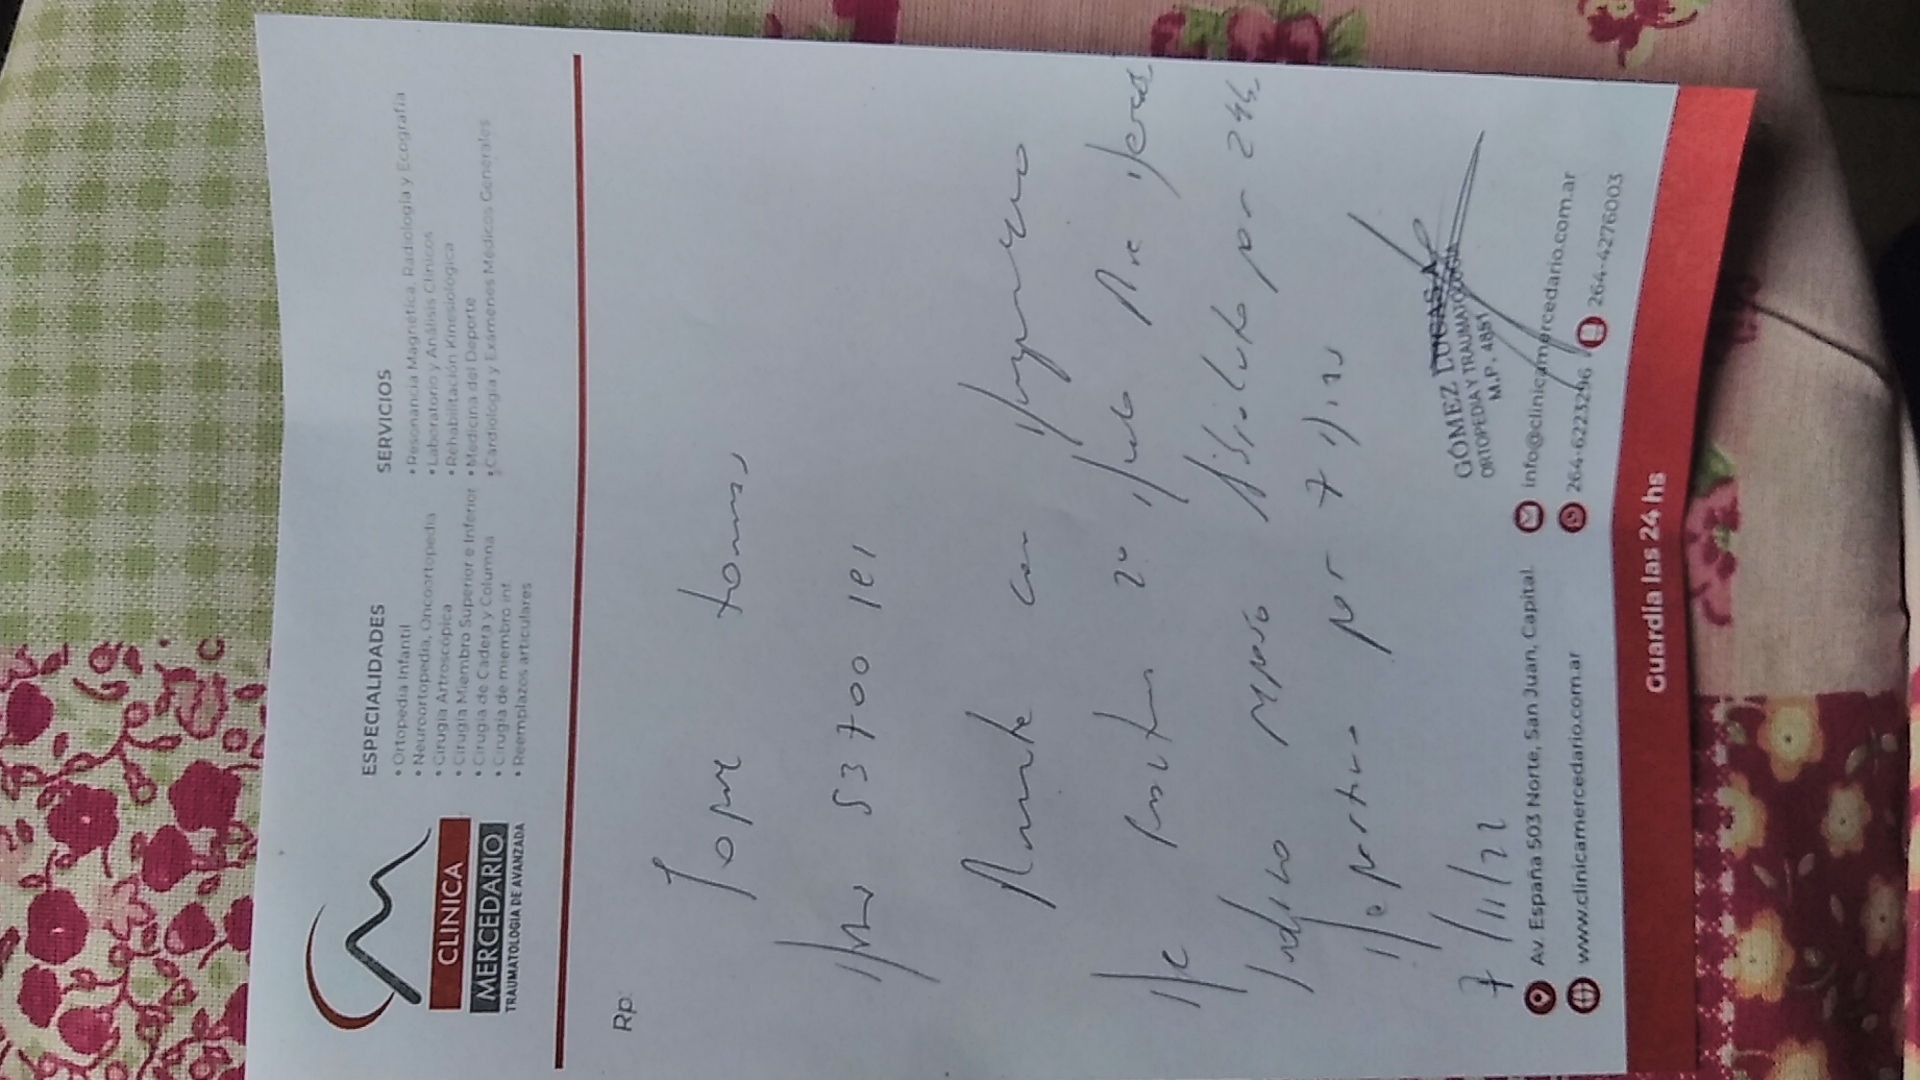 CLINICA
MERCEDARIO
TRAUMATOLOGIA DE AVANZADA
ESPECIALIDADES
• Ortopedia Infantil
• Neuroortopedia, Oncoortopedia
• Cirugía Artroscópica
• Cirugía Miembro Superior e Inferior
• Cirugía de Cadera y Columna
• Cirugía de miembro inf.
• Reemplazos articulares
SERVICIOS
• Resonancia Magnética, Radiología y Ecografía
• Laboratorio y Análisis Clínicos
• Rehabilitación Kinesiológica
• Medicina del Deporte
• Cardiología y Exámenes Médicos Generales
Rp:
tomas
53700 181
con
De 2° dedo
Indico reposo absoluto por 24h
Deportivo por 7 dias
7/11/22
GÓMEZ LUCAS A.
ORTOPEDIA Y TRAUMATOLOGIA
M.P. 4851
Av. España 503 Norte, San Juan, Capital.
info@clinicamercedario.com.ar
www.clinicamercedario.com.ar
264-6223296
264-4276003
Guardia las 24 hs